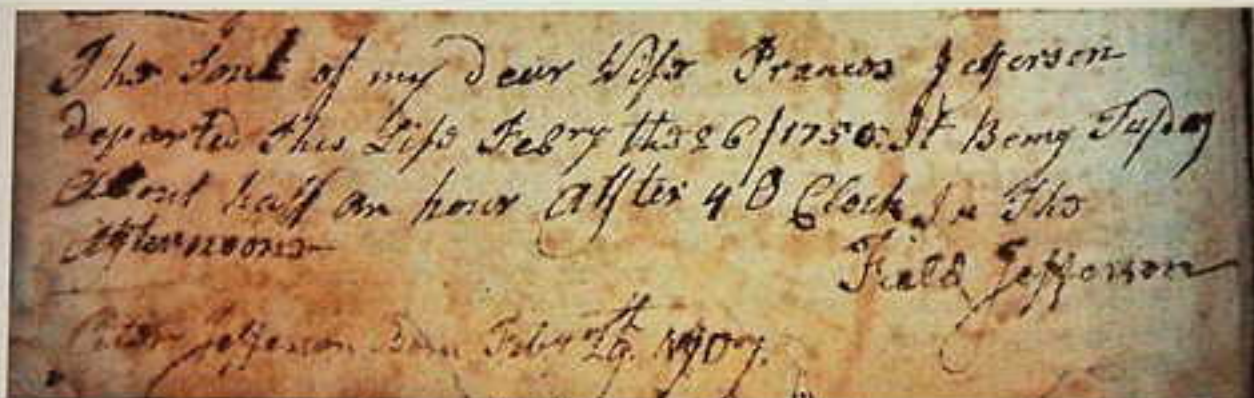 The Soul of my dear Wife Frances Jefferson
departed this Life Febry the 26/1750. It Being Tusday
About half an hour After 4 O Clock In The
Afternoone
Field Jefferson
Peter Jefferson Born Feby 29th 1707.